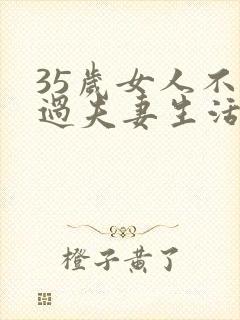 35歲女人不
過夫妻生活
橙子黄了